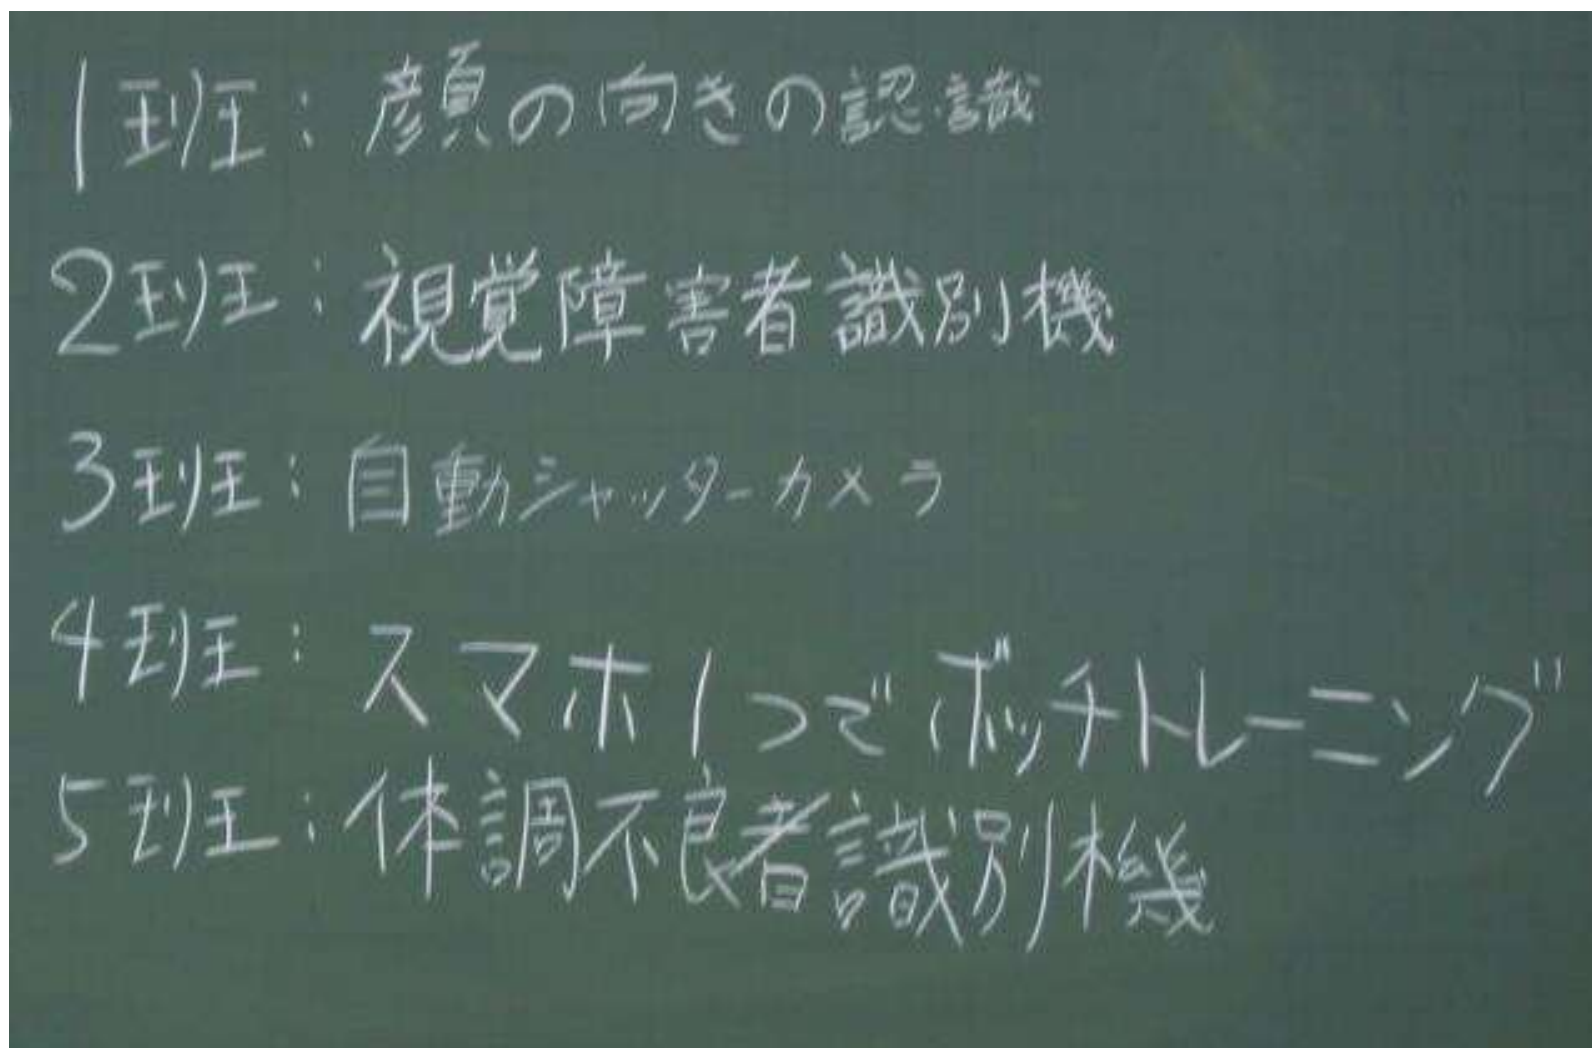 1班：顔の向きの認識
2班：視覚障害者識別機
3班：自動シャッターカメラ
4班：スマホ1つでボッチトレーニング
5班：体調不良者識別機